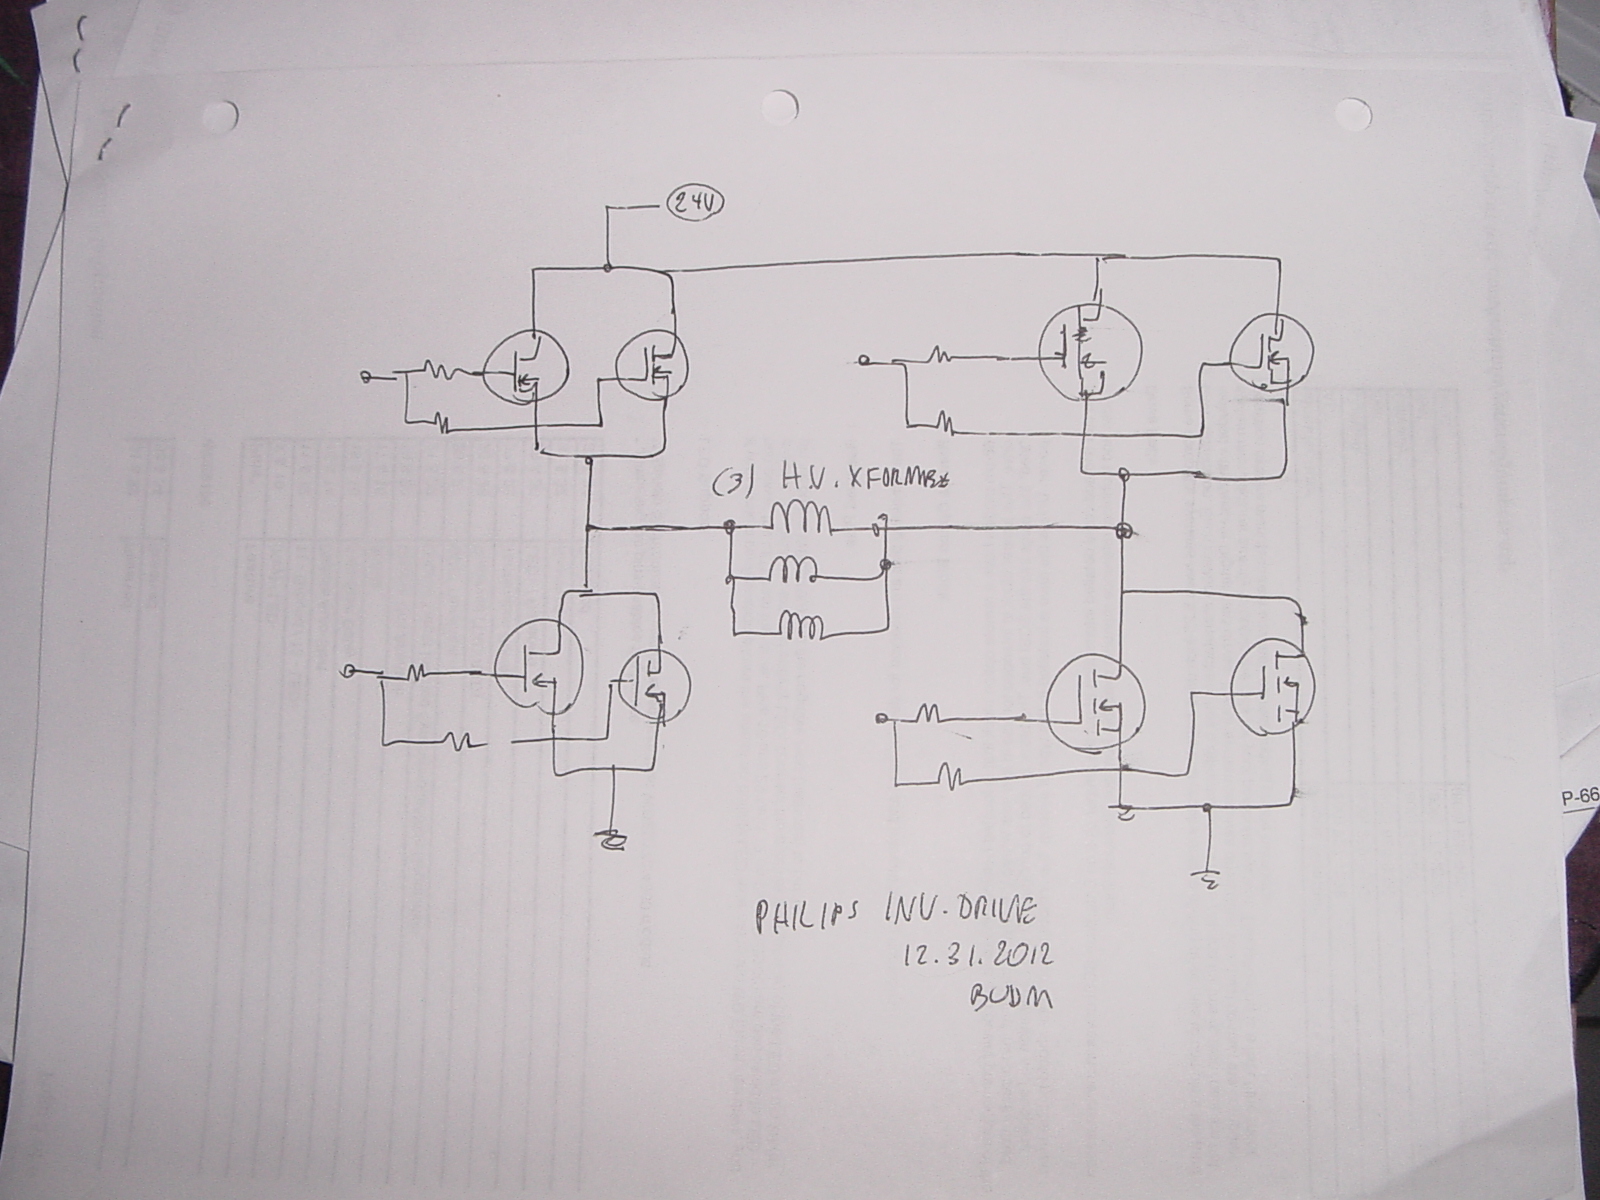 24V
(3) H.V. XFORMER
P-66
PHILIPS INV. DRIVE
12.31.2012
BUDM